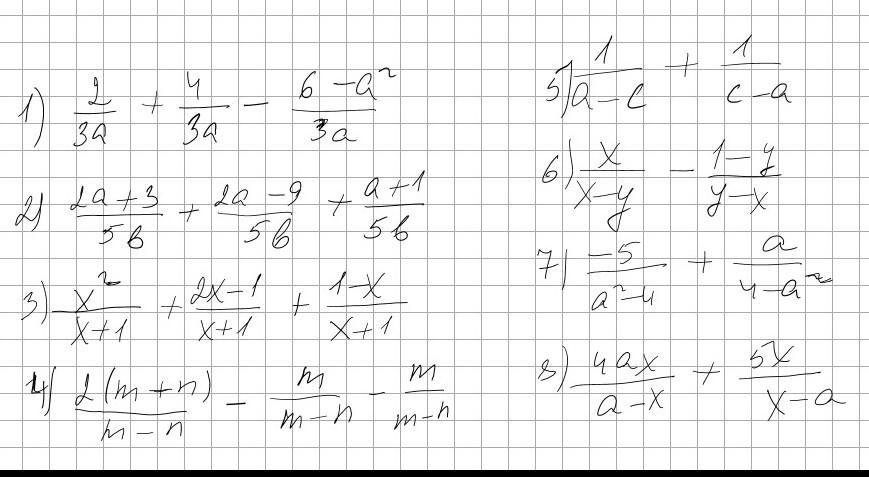 1) 2/3a + 4/3a - (6-a²)/3a
2) (2a+3)/5b + (2a-9)/5b + (a+1)/5b
3) x²/(x+1) + (2x-1)/(x+1) + (1-x)/(x+1)
4) 2(m+n)/(m-n) - m/(m-n) - m/(m-n)
5) 1/(a-c) + 1/(c-a)
6) x/(x-y) - (1-y)/(y-x)
7) -5/(a²-4) + a/(4-a²)
8) 4ax/(a-x) + 5x/(x-a)